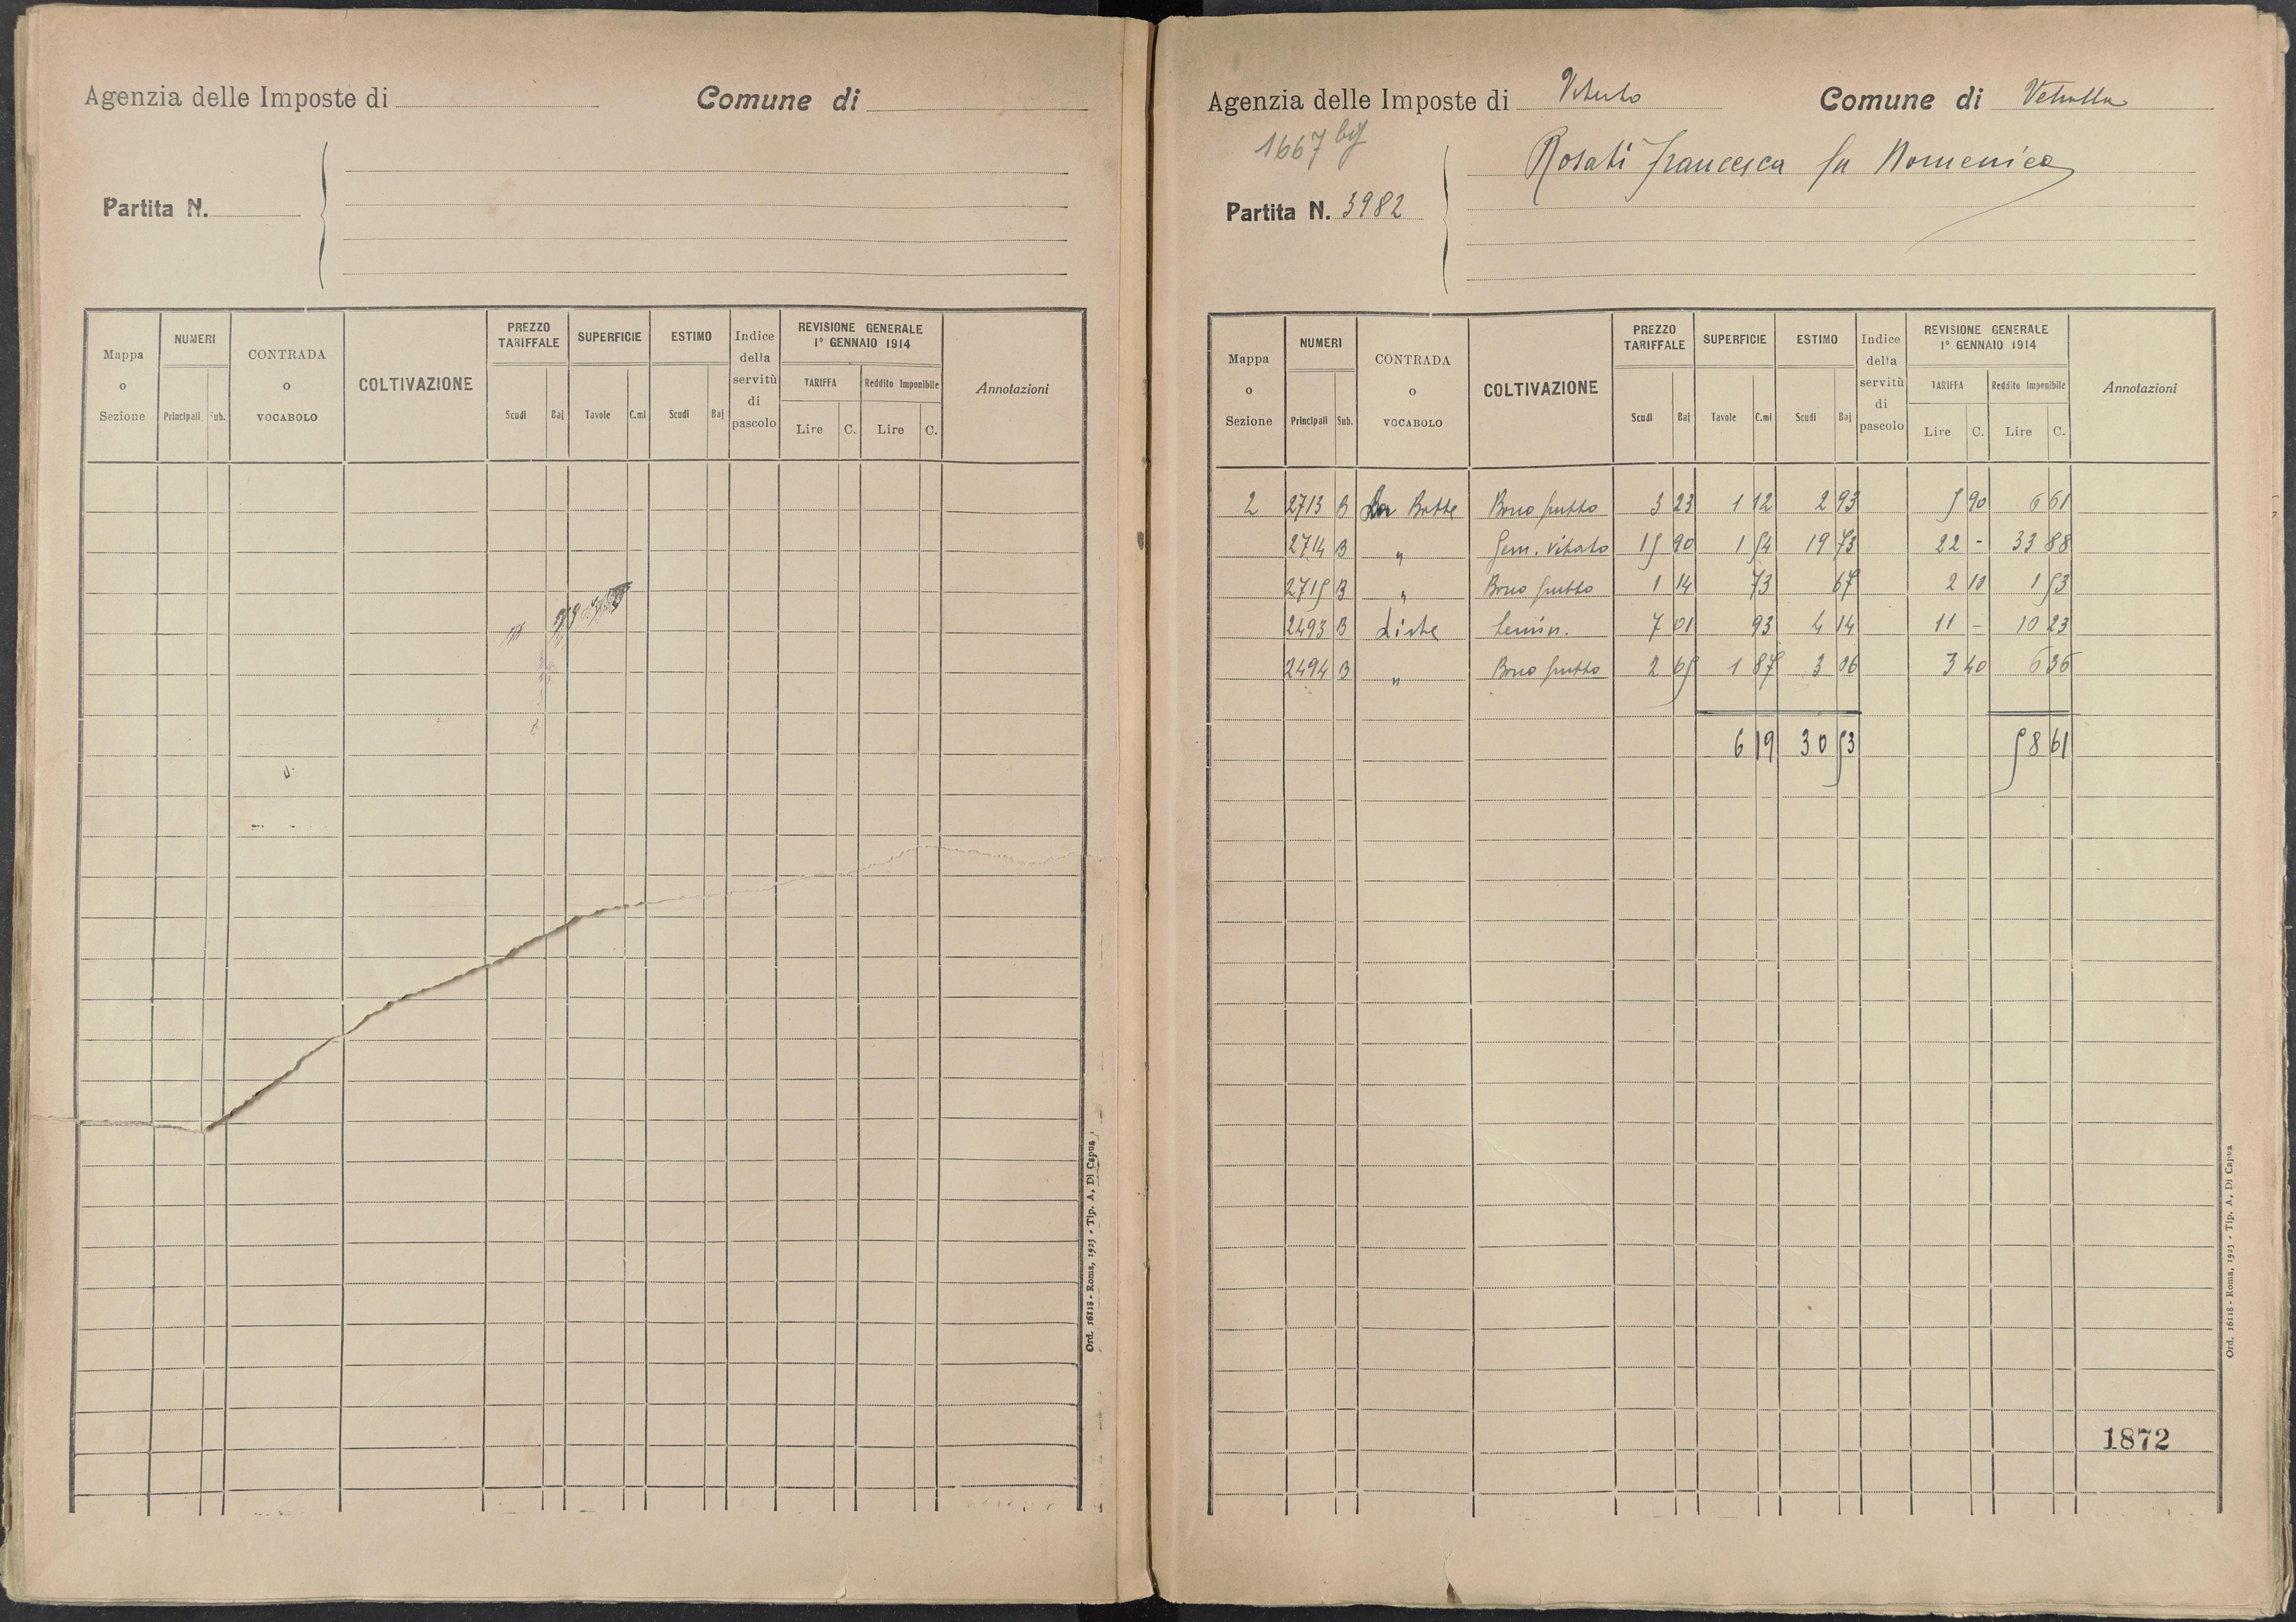 Agenzia delle Imposte di
Comune di
Partita N.
Mappa o Sezione
NUMERI
Principali
Sub.
CONTRADA o VOCABOLO
COLTIVAZIONE
PREZZO TARIFFALE
Scudi
Baj
SUPERFICIE
Tavole
C.mi
ESTIMO
Scudi
Baj
Indice della servitù di pascolo
REVISIONE GENERALE
1° GENNAIO 1914
TARIFFA
Reddito Imponibile
Lire
C.
Lire
C.
Annotazioni
Ord. 16118 - Roma, 1923 - Tip. A. Di Capua
Agenzia delle Imposte di Viterbo
Comune di Vetralla
1667 bis
Rosati Francesca fu Domenico
Partita N. 3982
Mappa o Sezione
NUMERI
Principali
Sub.
CONTRADA o VOCABOLO
COLTIVAZIONE
PREZZO TARIFFALE
Scudi
Baj
SUPERFICIE
Tavole
C.mi
ESTIMO
Scudi
Baj
Indice della servitù di pascolo
REVISIONE GENERALE
1° GENNAIO 1914
TARIFFA
Reddito Imponibile
Lire
C.
Lire
C.
Annotazioni
2 2713 B La Botte Bosco frutto 3 23 1 12 2 93 5 90 6 61
2714 B " Sem. vitato 15 90 1 54 19 73 22 - 33 88
2715 B " Bosco frutto 1 14 73 67 2 10 1 53
2493 B Liste Semin. 7 01 93 4 14 11 - 10 23
2494 B " Bosco frutto 2 65 1 87 3 06 3 40 6 36
6 19 30 53 58 61
1872
Ord. 16118 - Roma, 1923 - Tip. A. Di Capua